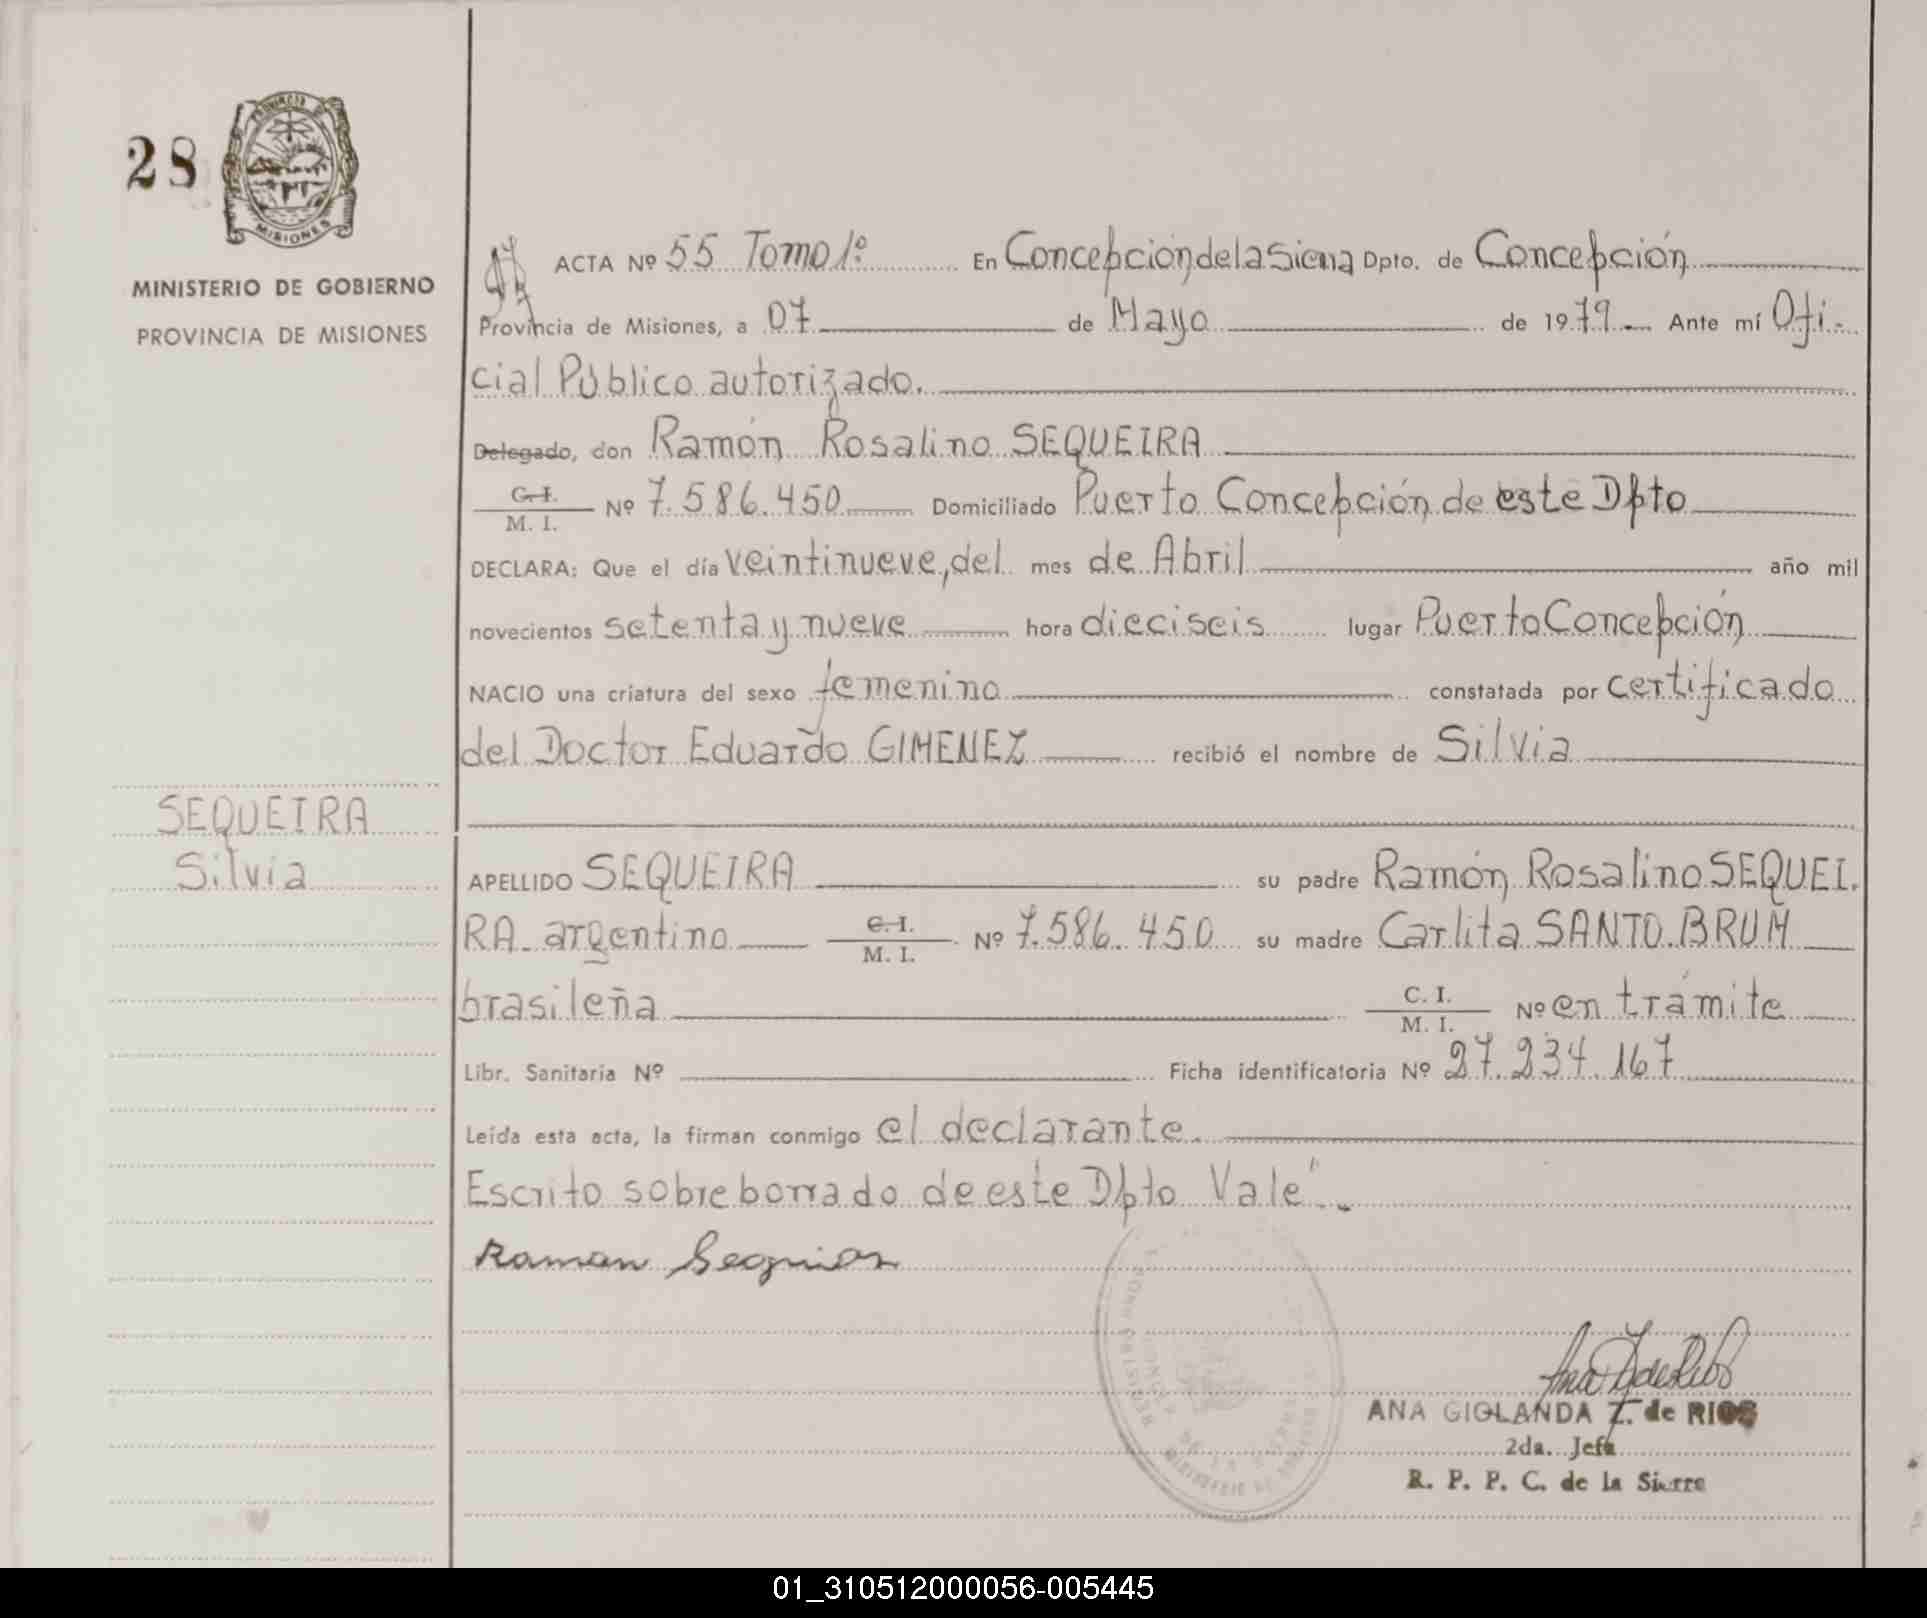 28
PROVINCIA DE
MISIONES
MINISTERIO DE GOBIERNO
PROVINCIA DE MISIONES
ACTA Nº 55 Tomo 1º En Concepción de la Sierra Dpto. de Concepción
Provincia de Misiones, a 07 de Mayo de 1979 Ante mí Ofi-
cial Público autorizado.
Delegado, don Ramón Rosalino SEQUEIRA
C. I.
M. I. Nº 7.586.450 Domiciliado Puerto Concepción de este Dpto
DECLARA: Que el día veintinueve, del mes de Abril año mil
novecientos setenta y nueve hora dieciseis lugar Puerto Concepción
NACIO una criatura del sexo femenino constatada por certificado
del Doctor Eduardo GIMENEZ recibió el nombre de Silvia
SEQUEIRA
Silvia
APELLIDO SEQUEIRA su padre Ramón Rosalino SEQUEI.
RA argentino C. I. M. I. Nº 7.586.450 su madre Carlita SANTO BRUM
brasileña C. I. M. I. Nº en trámite
Libr. Sanitaria Nº Ficha identificatoria Nº 27.234.167
Leída esta acta, la firman conmigo el declarante.
Escrito sobre borrado de este Dpto Vale".
Ramon
ANA GIOLANDA Z. de RIOS
2da. Jefa
R. P. P. C. de la Sierra
01_310512000056-005445